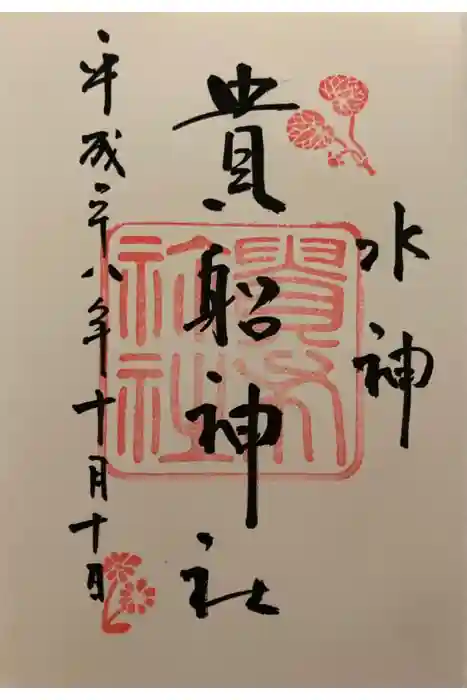 水神
貴船神社
平成二十八年十月十日
貴船神社